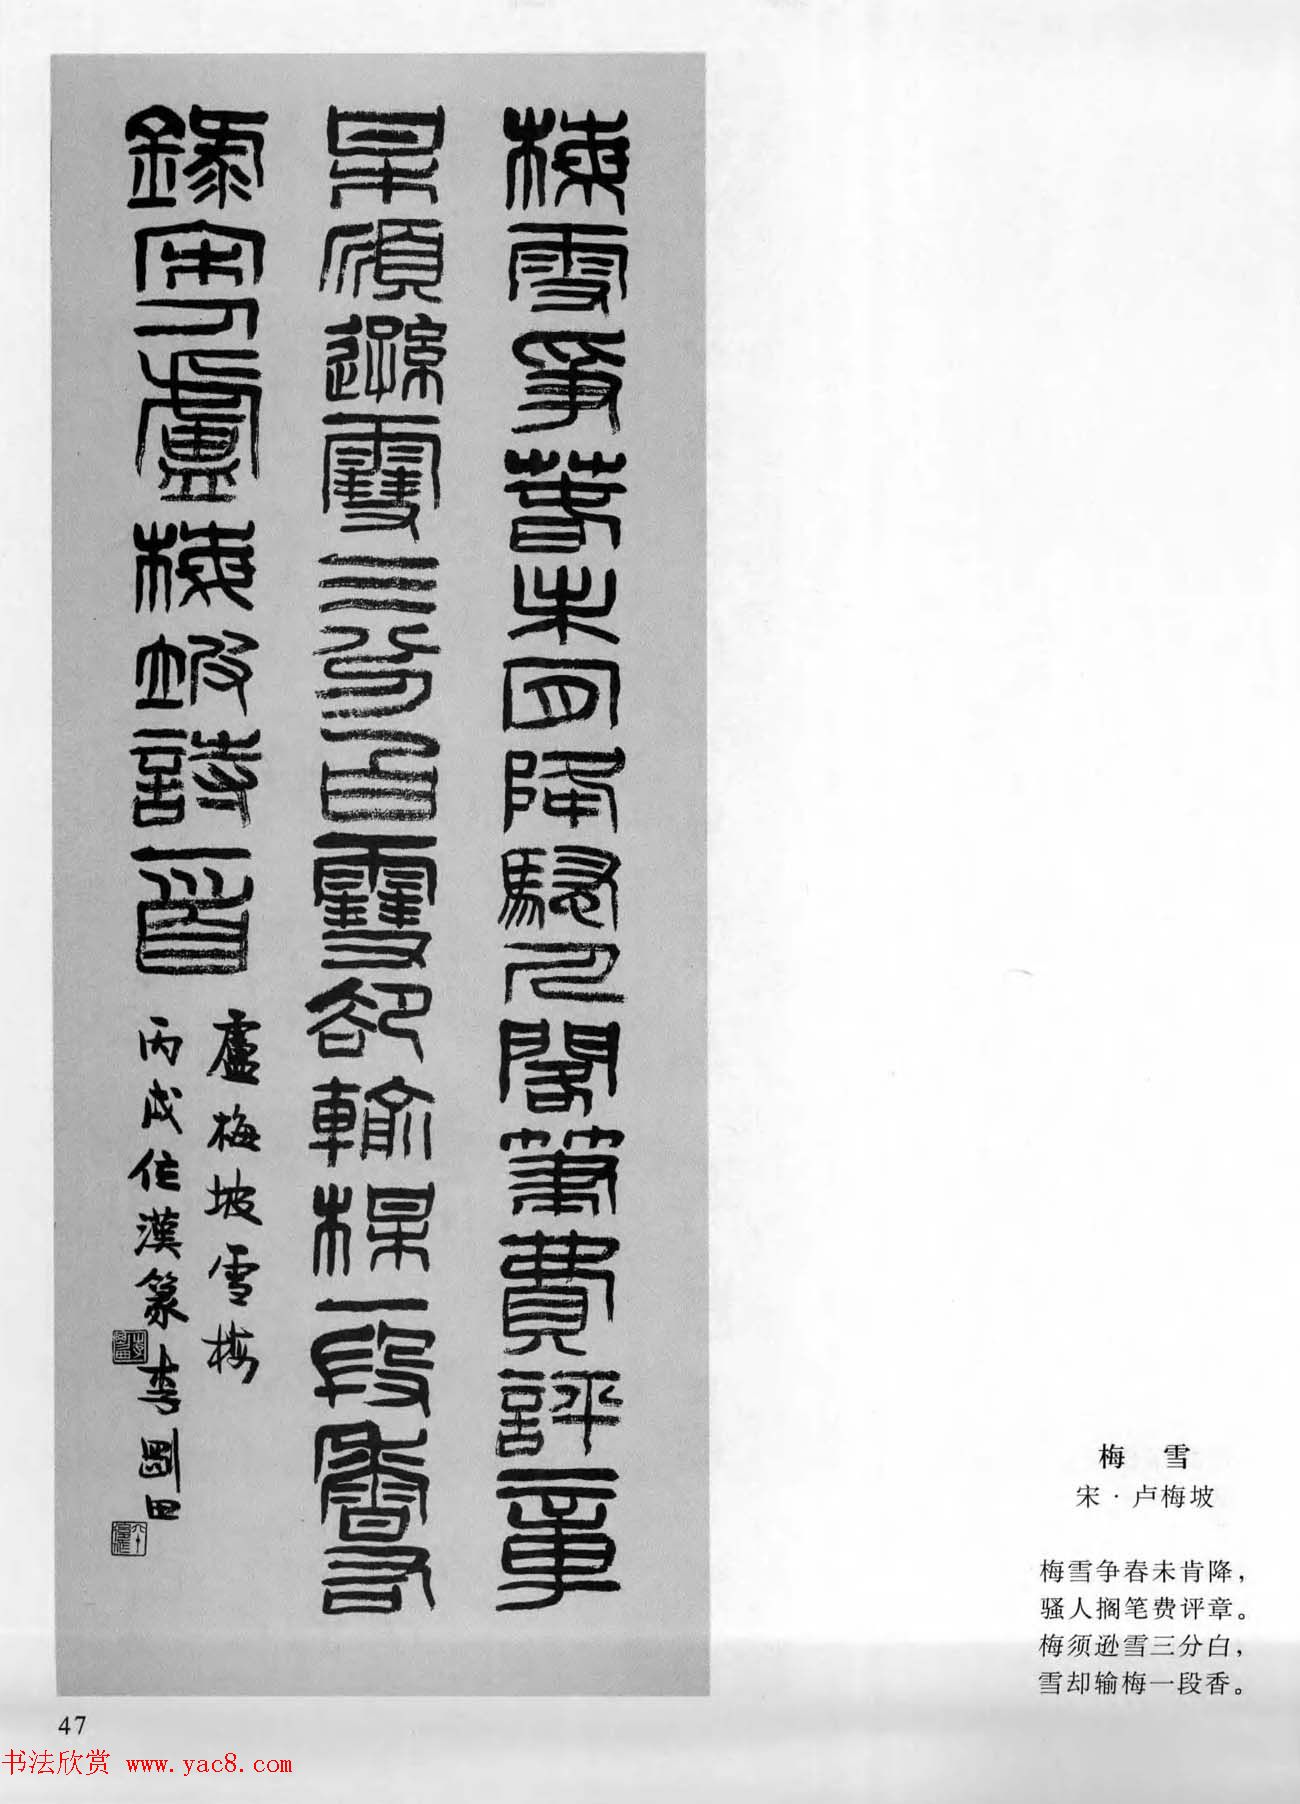 梅雪爭春未肯降騷人閣筆費評章
某須遜雪三分白雪卻輸楳一段香右
錄宋盧梅坡詩一首
盧梅坡雪梅
丙戌作漢篆李剛田
梅 雪
宋·卢梅坡
梅雪争春未肯降，
骚人搁笔费评章。
梅须逊雪三分白，
雪却输梅一段香。
47
书法欣赏 www.yac8.com